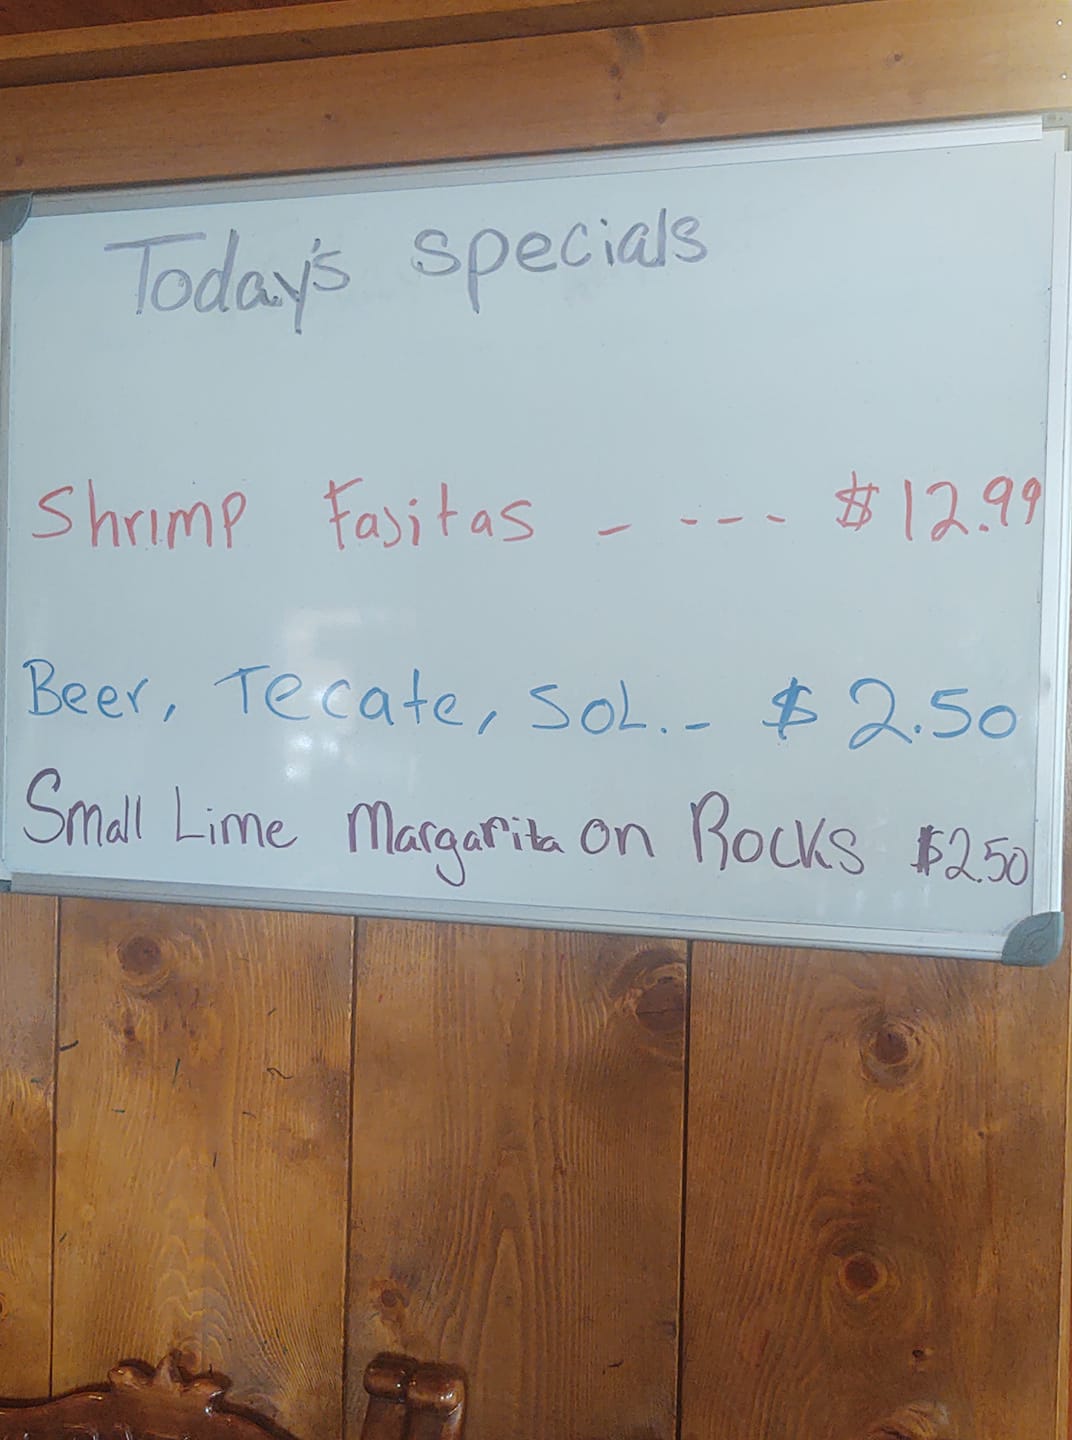 Today's specials
Shrimp Fajitas - --- $12.99
Beer, Tecate, SOL.- $2.50
Small Lime Margarita on Rocks $2.50